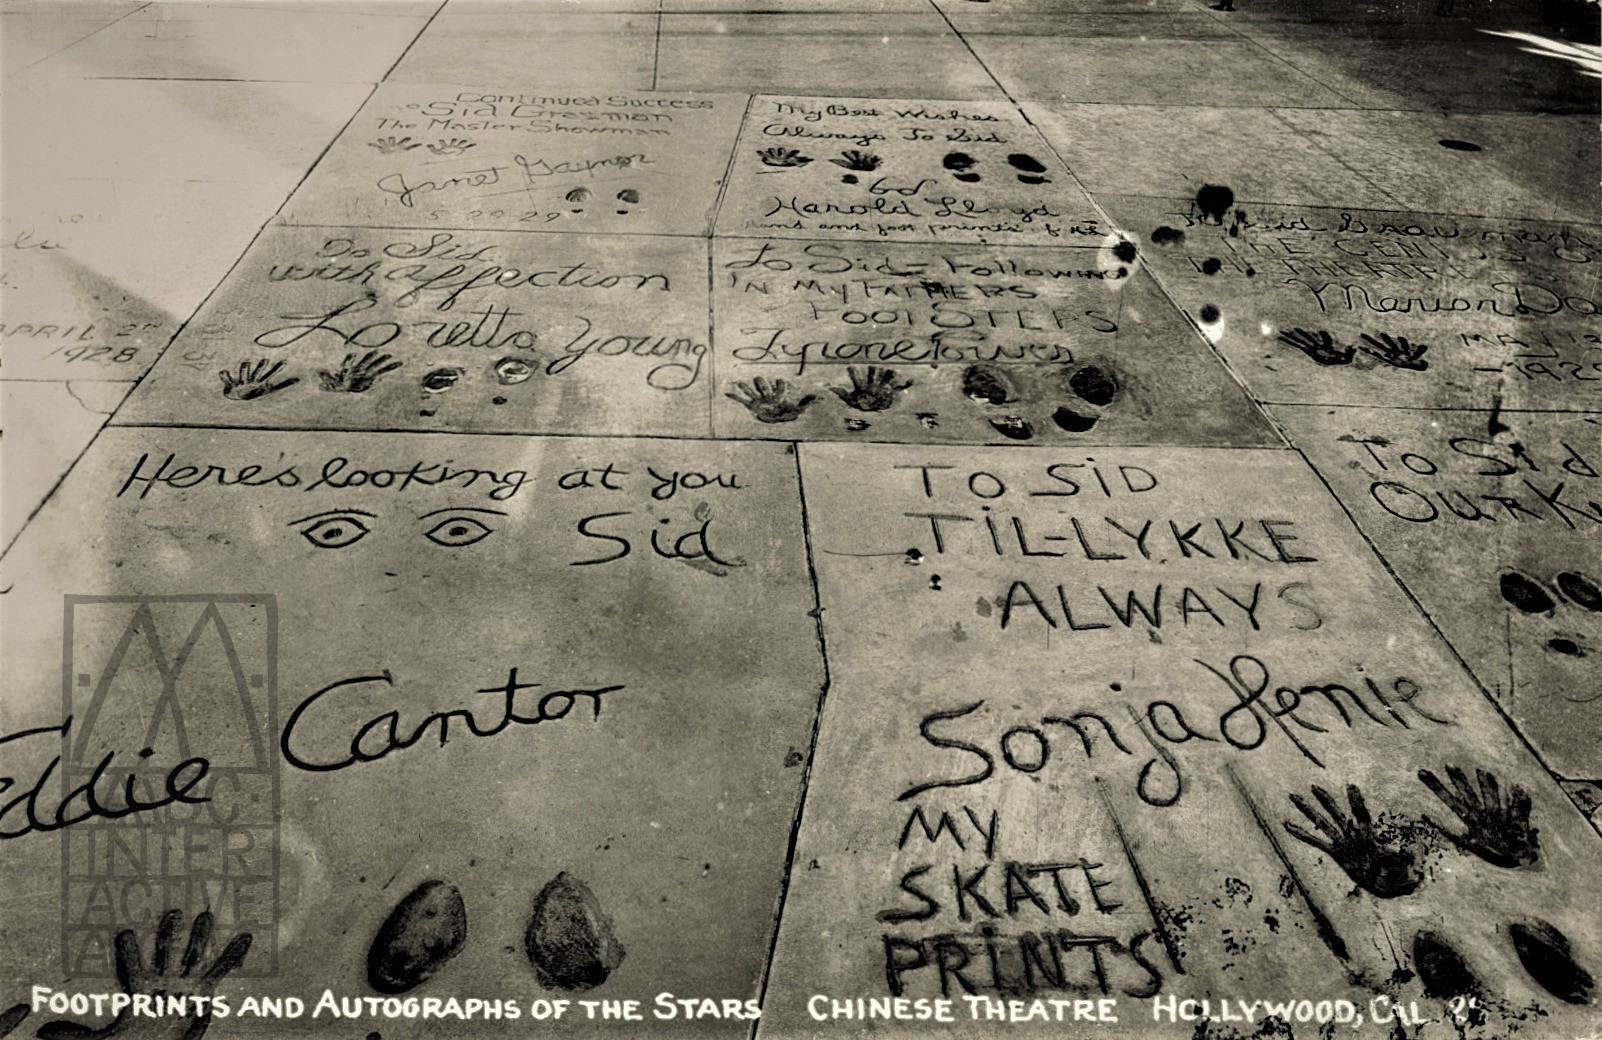 Continued Success
To Sid Grauman
The Master Showman
Janet Gaynor
5-29-29
My Best Wishes
Always To Sid
Harold Lloyd
and foot prints of
To Sid
with affection
Loretta Young
To Sid - Following
IN MY FATHERS
FOOTSTEPS
Tyrone Power
Sid Grauman
THE GENIUS O
THE THEATRE
Marion Da
MAY 13
-192
APRIL 2ND
1928
Here's looking at you
Sid
Eddie Cantor
TO SiD
TiL-LYKKE
ALWAYS
Sonja Henie
MY
SKATE
PRiNTS
TO Sid
OUR K
INTER
ACTIVE
FOOTPRINTS AND AUTOGRAPHS OF THE STARS CHINESE THEATRE HOLLYWOOD, CAL